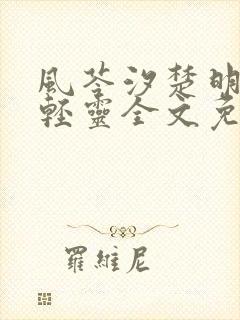 風荃汐楚明
輕靈全文免
羅維尼